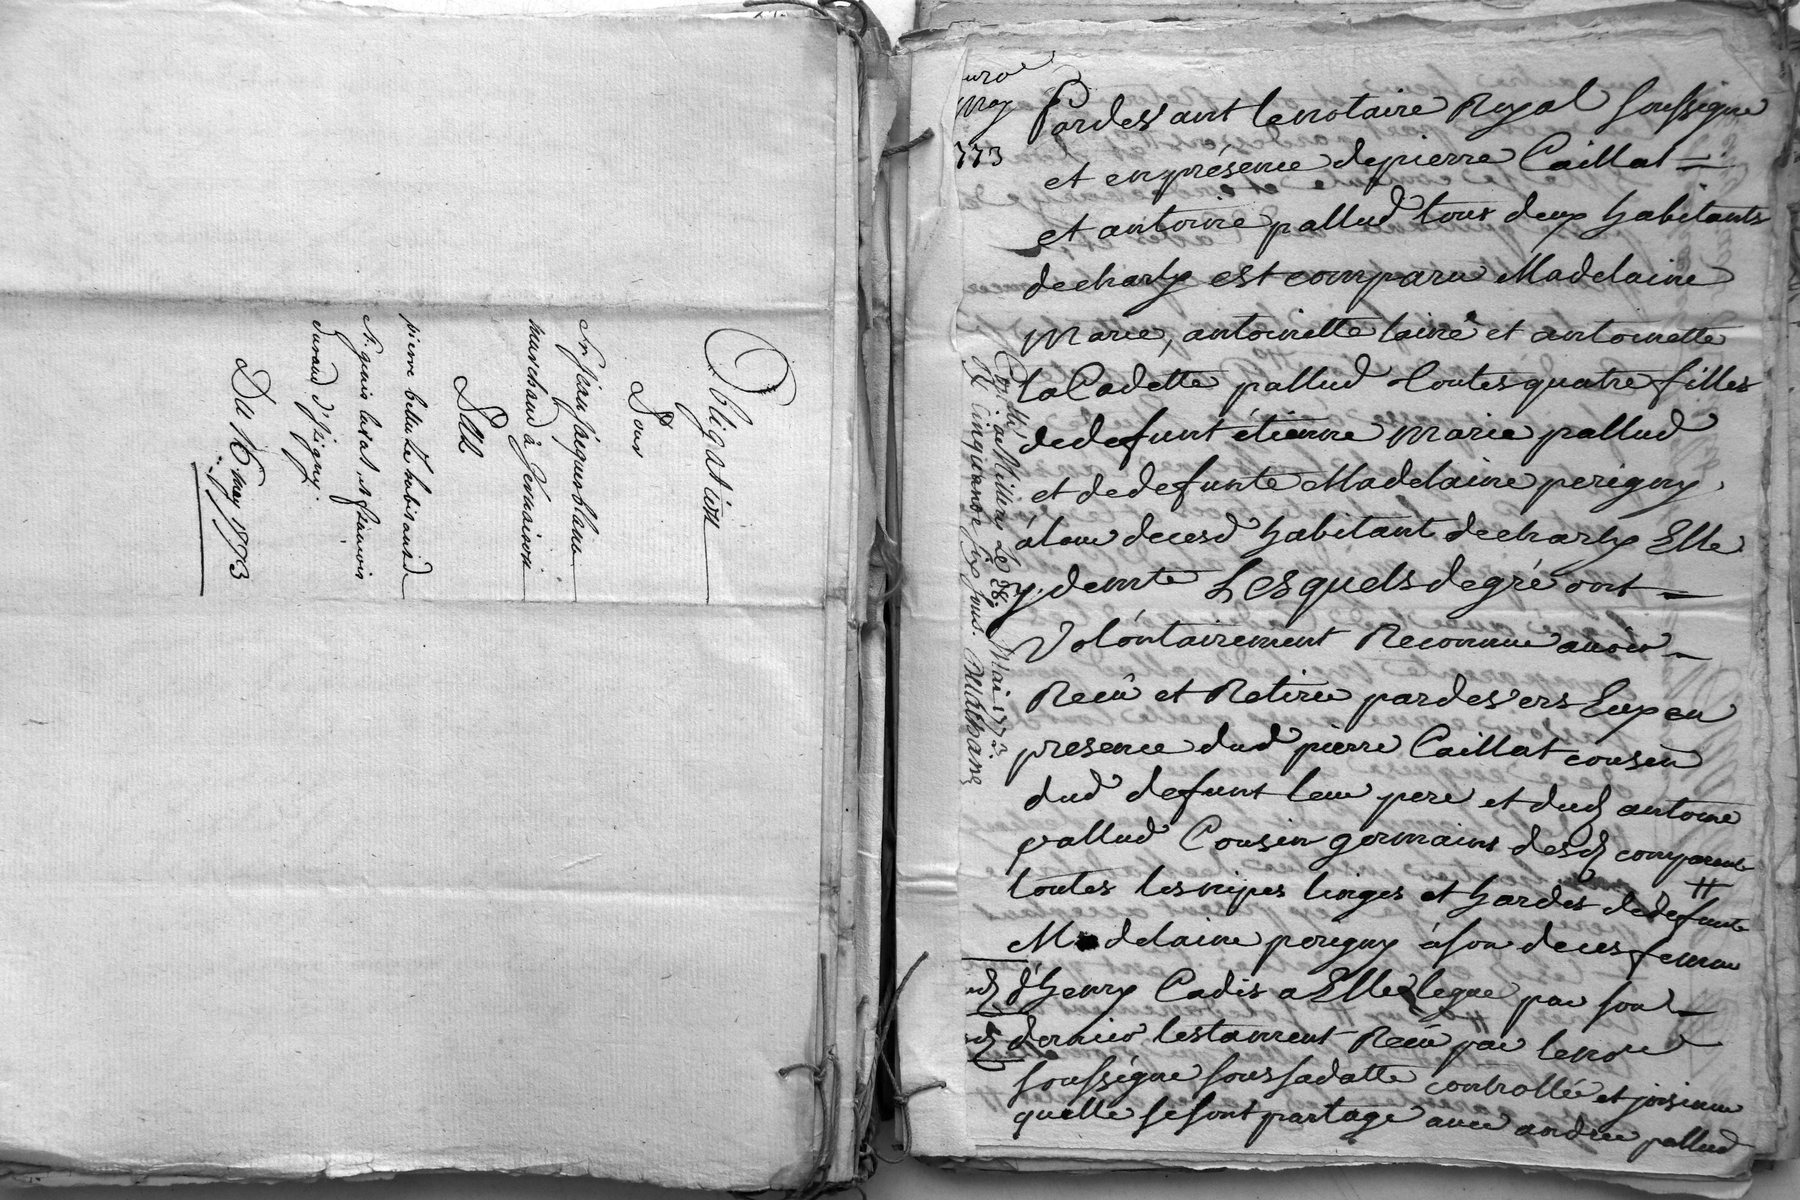 Obligation
Pour
Sr Jean Jaque blanc
marchand à
Sur
pierre habitant de
St. genis laval et françois
durand d'Irigny.
Du 16 may 1773
may
773
Pardevant le notaire Royal soussigné
et en présence de pierre Caillat
et antoine pallud tous deux habitants
de charly est comparu Madelaine
Marie, antoinette lainé et antoinette
la Cadette pallud toutes quatre filles
de defunt étienne Marie pallud
et de defunte Madelaine perigny,
à leur deces habitant de charly Elle
y demte Lesquels de gré ont
Volontairement Reconnue avoir
Reçû et Retiré pardevers Eux en
presence dud pierre Caillat cousin
dud defunt leur pere et dud antoine
pallud Cousin germains desd comparente
toutes les nipes linges et hardes de defunte
Madelaine perigny à son deces femme
d'henry Cadis a Elle legué par son
dernier testament Reçû par le nore
soussigné sous sa datte controllé et insinué
quelle se sont partagé avec andrée pallud
Con.llé à Millery Le 28. Mai 1773.
R. Cinquante six sous.